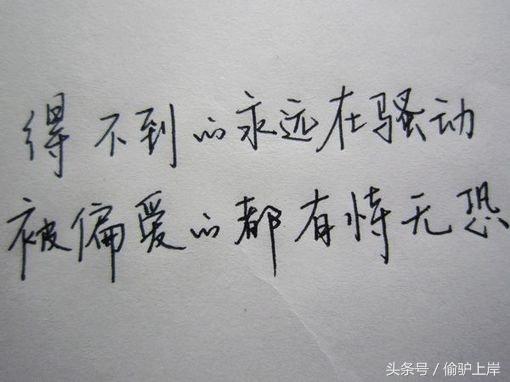 得不到的永远在骚动
被偏爱的都有恃无恐
头条号/偷驴上岸